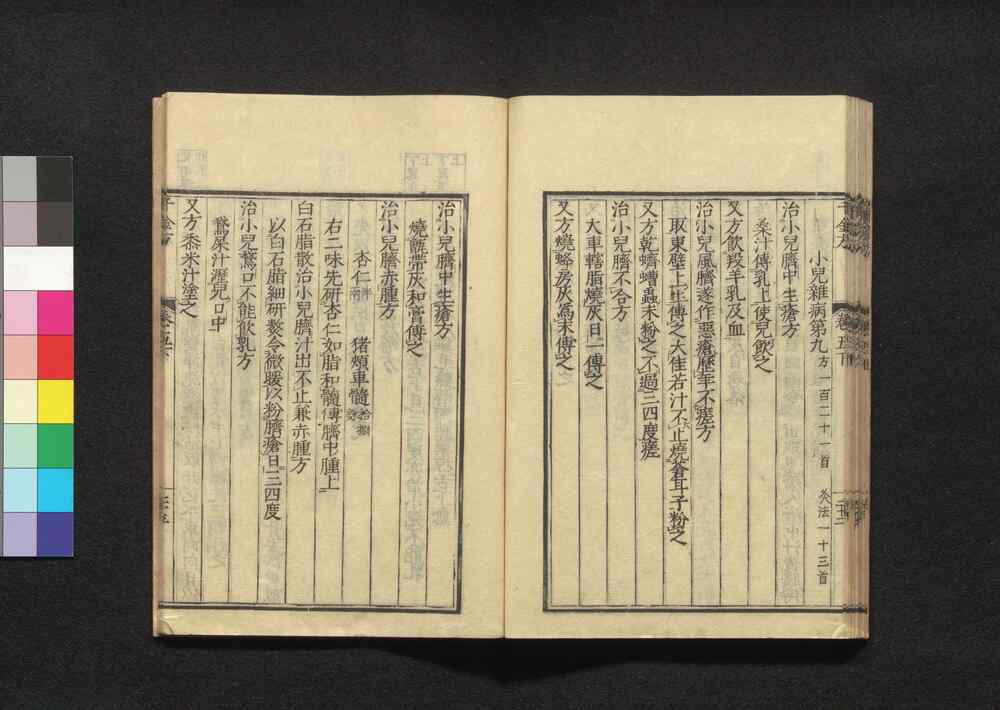 小兒雜病第九 方一百二十一首 灸法一十三首
治小兒臍中生瘡方
桒汁傅乳上使兒飲之
又方飲羖羊乳及血
治小兒風臍遂作惡瘡歷年不瘥方
取東壁上土傅之大佳若汁不止燒蒼耳子粉之
又方乾蠐螬蟲末粉之不過三四度瘥
治小兒臍不合方
大車轄脂燒灰日一傅之
又方燒蜂房灰爲末傅之
治小兒臍中生瘡方
燒甑帶灰和膏傅之
治小兒臍赤腫方
杏仁 猪頰車髓
右二味先研杏仁如脂和髓傅臍中腫上
白石脂散治小兒臍汁出不止兼赤腫方
以白石脂細研熬令微暖以粉臍瘡日三四度
治小兒鵞口不能飲乳方
鵞屎汁瀝兒口中
又方黍米汁塗之
千金方 卷五下 二十五